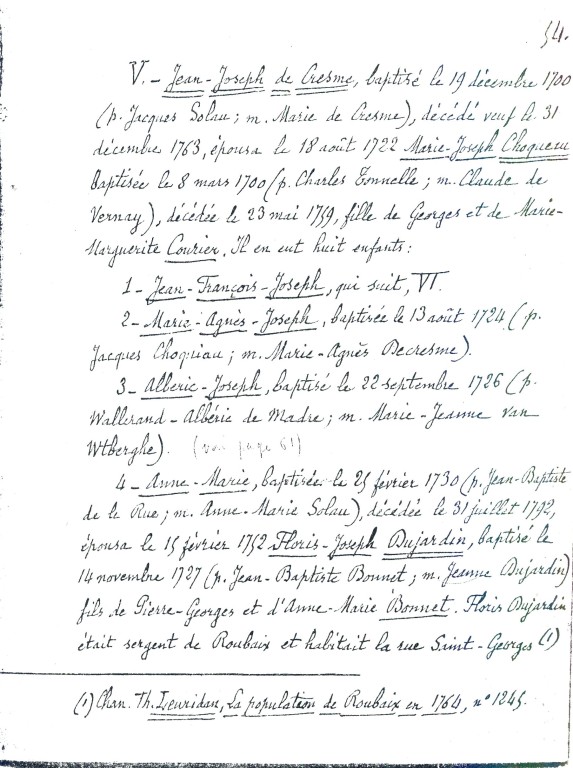 54.
V. - Jean-Joseph de Cresme, baptisé le 19 décembre 1700
(p. Jacques Solau ; m. Marie de Cresme), décédé veuf le 31
décembre 1763, épousa le 18 août 1722 Marie-Joseph Choqueau
baptisée le 8 mars 1700 (p. Charles Tonnelle ; m. Claude de
Vernay), décédée le 23 mai 1759, fille de Georges et de Marie-
Marguerite Courier. Il en eut huit enfants :
1 - Jean-François-Joseph, qui suit, VI.
2 - Marie-Agnès-Joseph, baptisée le 13 août 1724 (p.
Jacques Choquiau ; m. Marie-Agnès Decresme).
3 - Albéric-Joseph, baptisé le 22 septembre 1726 (p.
Wallerand-Albéric de Madre ; m. Marie-Jeanne van
Wtberghe). (voir page 61)
4 - Anne-Marie, baptisée le 25 février 1730 (p. Jean-Baptiste
de la Rue ; m. Anne-Marie Solau), décédée le 31 juillet 1792,
épousa le 15 février 1752 Floris-Joseph Dujardin, baptisé le
14 novembre 1727 (p. Jean-Baptiste Bonnet ; m. Jeanne Dujardin)
fils de Pierre-Georges et d'Anne-Marie Bonnet. Floris Dujardin
était sergent de Roubaix et habitait la rue Saint-Georges (1)
(1) Chan. Th. Leuridan, La population de Roubaix en 1764, n° 1245.